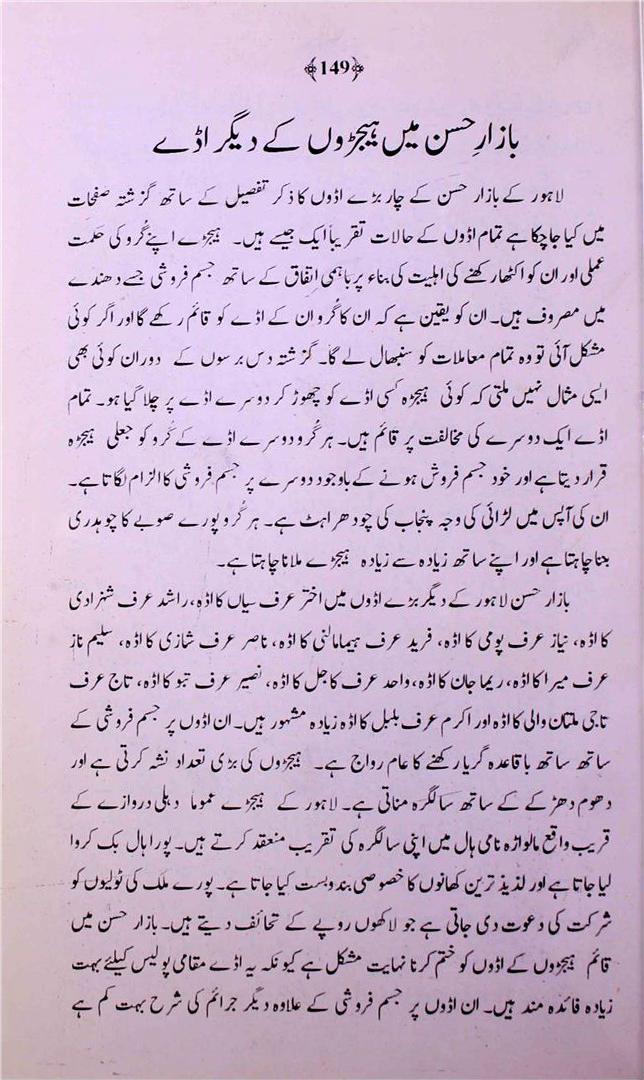 ﴾149﴿
بازارِ حسن میں ہیجڑوں کے دیگر اڈے
لاہور کے بازار حسن کے چار بڑے اڈوں کا ذکر تفصیل کے ساتھ گزشتہ صفحات
میں کیا جا چکا ہے تمام اڈوں کے حالات تقریباً ایک جیسے ہیں۔ ہیجڑے اپنے گُرو کی حکمت
عملی اور ان کو اکٹھا رکھنے کی اہلیت کی بناء پر باہمی اتفاق کے ساتھ جسم فروشی جسے دھندے
میں مصروف ہیں۔ ان کو یقین ہے کہ ان کا گُرو ان کے اڈے کو قائم رکھے گا اور اگر کوئی
مشکل آئی تو وہ تمام معاملات کو سنبھال لے گا۔ گزشتہ دس برسوں کے دوران کوئی بھی
ایسی مثال نہیں ملتی کہ کوئی ہیجڑہ کسی اڈے کو چھوڑ کر دوسرے اڈے پر چلا گیا ہو۔ تمام
اڈے ایک دوسرے کی مخالفت پر قائم ہیں۔ ہر گُرو دوسرے اڈے کے گُرو کو جعلی ہیجڑہ
قرار دیتا ہے اور خود جسم فروش ہونے کے باوجود دوسرے پر جسم فروشی کا الزام لگاتا ہے۔
ان کی آپس میں لڑائی کی وجہ پنجاب کی چودھراہٹ ہے۔ ہر گُرو پورے صوبے کا چوہدری
بننا چاہتا ہے اور اپنے ساتھ زیادہ سے زیادہ ہیجڑے ملانا چاہتا ہے۔
بازار حسن لاہور کے دیگر بڑے اڈوں میں اختر عرف سیاں کا اڈہ، راشد عرف شہزادی
کا اڈہ، نیاز عرف پومی کا اڈہ، فرید عرف ہیما مالنی کا اڈہ، ناصر عرف شازی کا اڈہ، سلیم ناز
عرف میرا کا اڈہ، ریما جان کا اڈہ، واحد عرف کاجل کا اڈہ، نصیر عرف تبو کا اڈہ، تاج عرف
تاجی ملتان والی کا اڈہ اور اکرم عرف بلبل کا اڈہ زیادہ مشہور ہیں۔ ان اڈوں پر جسم فروشی کے
ساتھ ساتھ باقاعدہ گریا رکھنے کا عام رواج ہے۔ ہیجڑوں کی بڑی تعداد نشہ کرتی ہے اور
دھوم دھڑکے کے ساتھ سالگرہ مناتی ہے۔ لاہور کے ہیجڑے عموماً دہلی دروازے کے
قریب واقع مالواڑہ نامی ہال میں اپنی سالگرہ کی تقریب منعقد کرتے ہیں۔ پورا ہال بک کروا
لیا جاتا ہے اور لذیذ ترین کھانوں کا خصوصی بندوبست کیا جاتا ہے۔ پورے ملک کی ٹولیوں کو
شرکت کی دعوت دی جاتی ہے جو لاکھوں روپے کے تحائف دیتے ہیں۔ بازار حسن میں
قائم ہیجڑوں کے اڈوں کو ختم کرنا نہایت مشکل ہے کیونکہ یہ اڈے مقامی پولیس کیلئے بہت
زیادہ فائدہ مند ہیں۔ ان اڈوں پر جسم فروشی کے علاوہ دیگر جرائم کی شرح بہت کم ہے